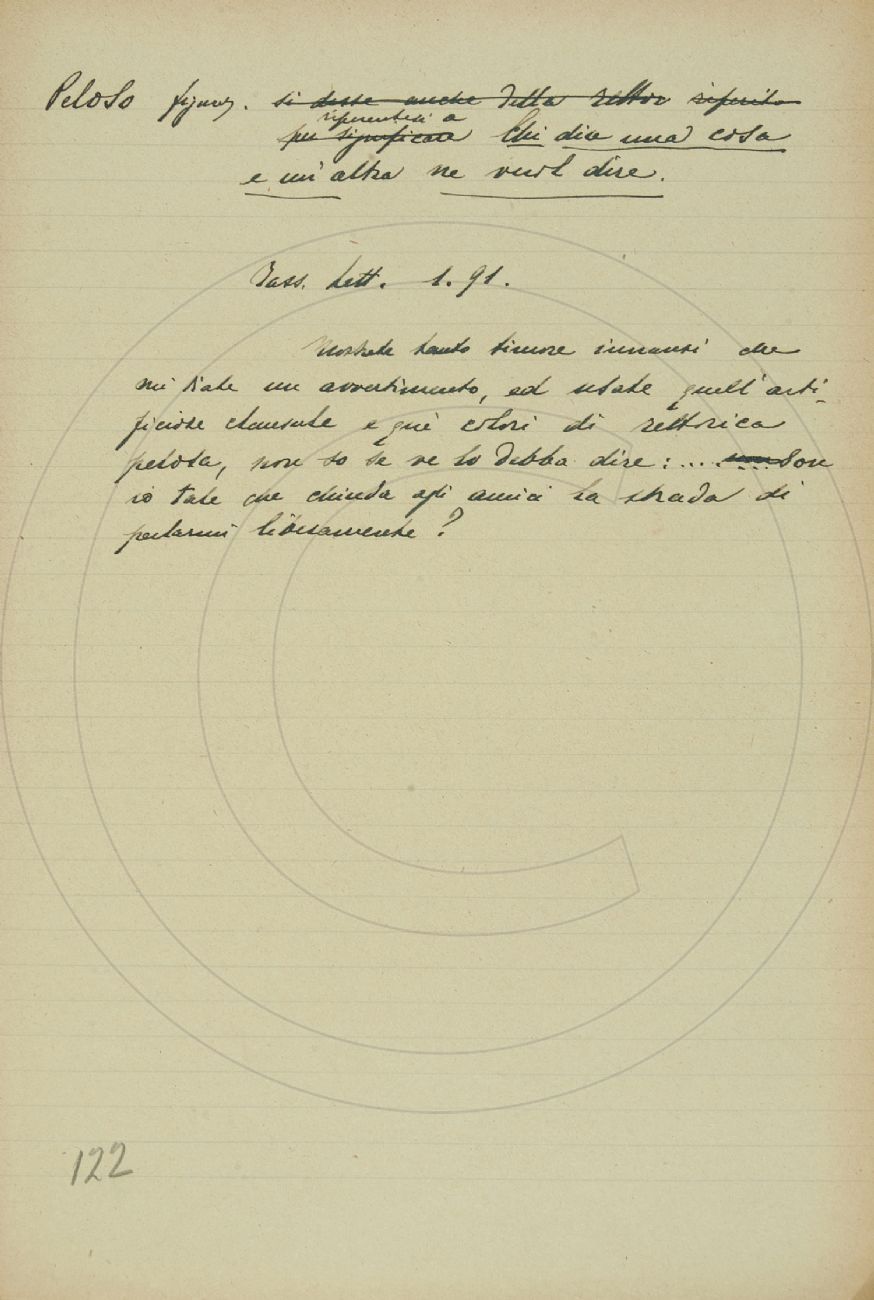 Peloso figurz. si disse anche della rettor riferito
riferentesi a
per significare Chi dia una cosa
e un'altra ne vuol dire.
Tass. Lett. 1.91.
Mostrate tanto timore innanzi che
mi diate un avvertimento, ed usate quell'arti-
ficiose clausule e que' colori di rettorica
pelosa, non so se ve lo debba dire: .... Son
io tale che chiuda agli amici la strada di
parlarmi liberamente?
122